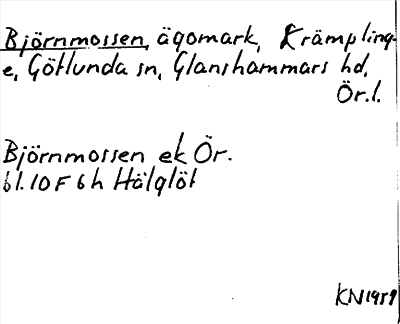 Björnmossen, ägomark, Krämpling-
e, Götlunda sn, Glanshammars hd,
Ör.l.
Björnmossen ek Ör.
bl.10F 6h Hälglöt
KN1959